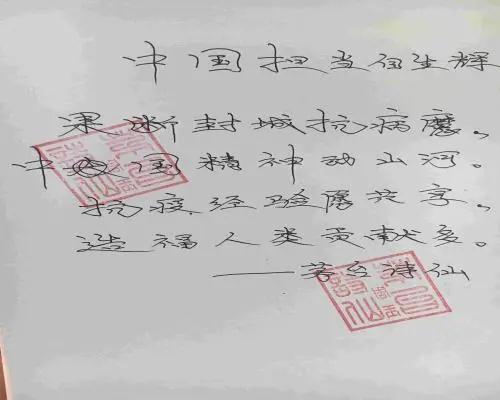 中国担当生辉
果断封城抗病魔，
中国精神动山河。
抗疫经验共享，
造福人类贡献多。
——诗仙